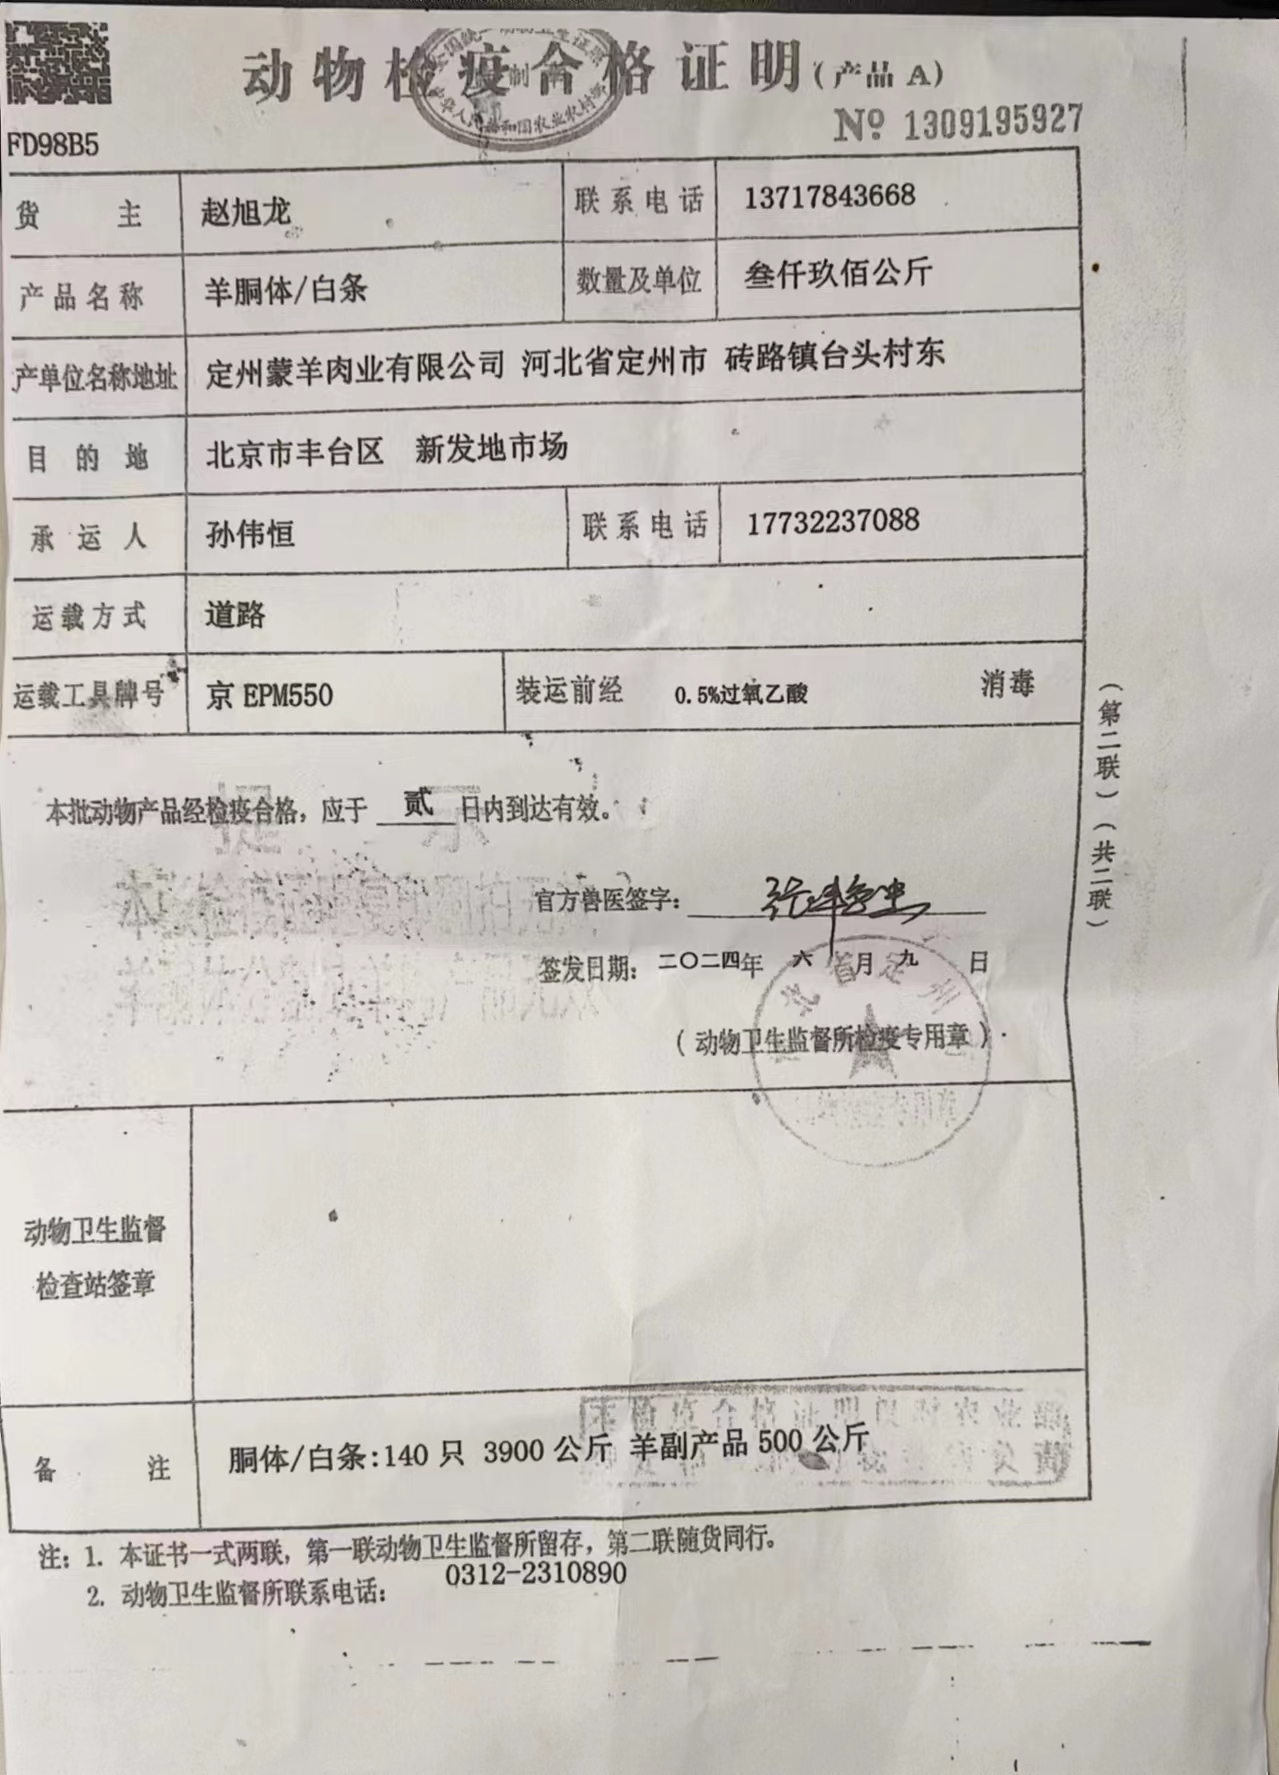 动物检疫合格证明（产品 A）
№ 1309195927
FD98B5
货主 赵旭龙 联系电话 13717843668
产品名称 羊胴体/白条 数量及单位 叁仟玖佰公斤
产单位名称地址 定州蒙羊肉业有限公司 河北省定州市 砖路镇台头村东
目的地 北京市丰台区 新发地市场
承运人 孙伟恒 联系电话 17732237088
运载方式 道路
运载工具牌号 京 EPM550 装运前经 0.5%过氧乙酸 消毒
本批动物产品经检疫合格，应于 贰 日内到达有效。
官方兽医签字：
签发日期：二〇二四年 六 月 九 日
（动物卫生监督所检疫专用章）
（第二联）（共二联）
动物卫生监督
检查站签章
备注 胴体/白条:140 只 3900 公斤 羊副产品 500 公斤
注：1. 本证书一式两联，第一联动物卫生监督所留存，第二联随货同行。
2. 动物卫生监督所联系电话：0312-2310890